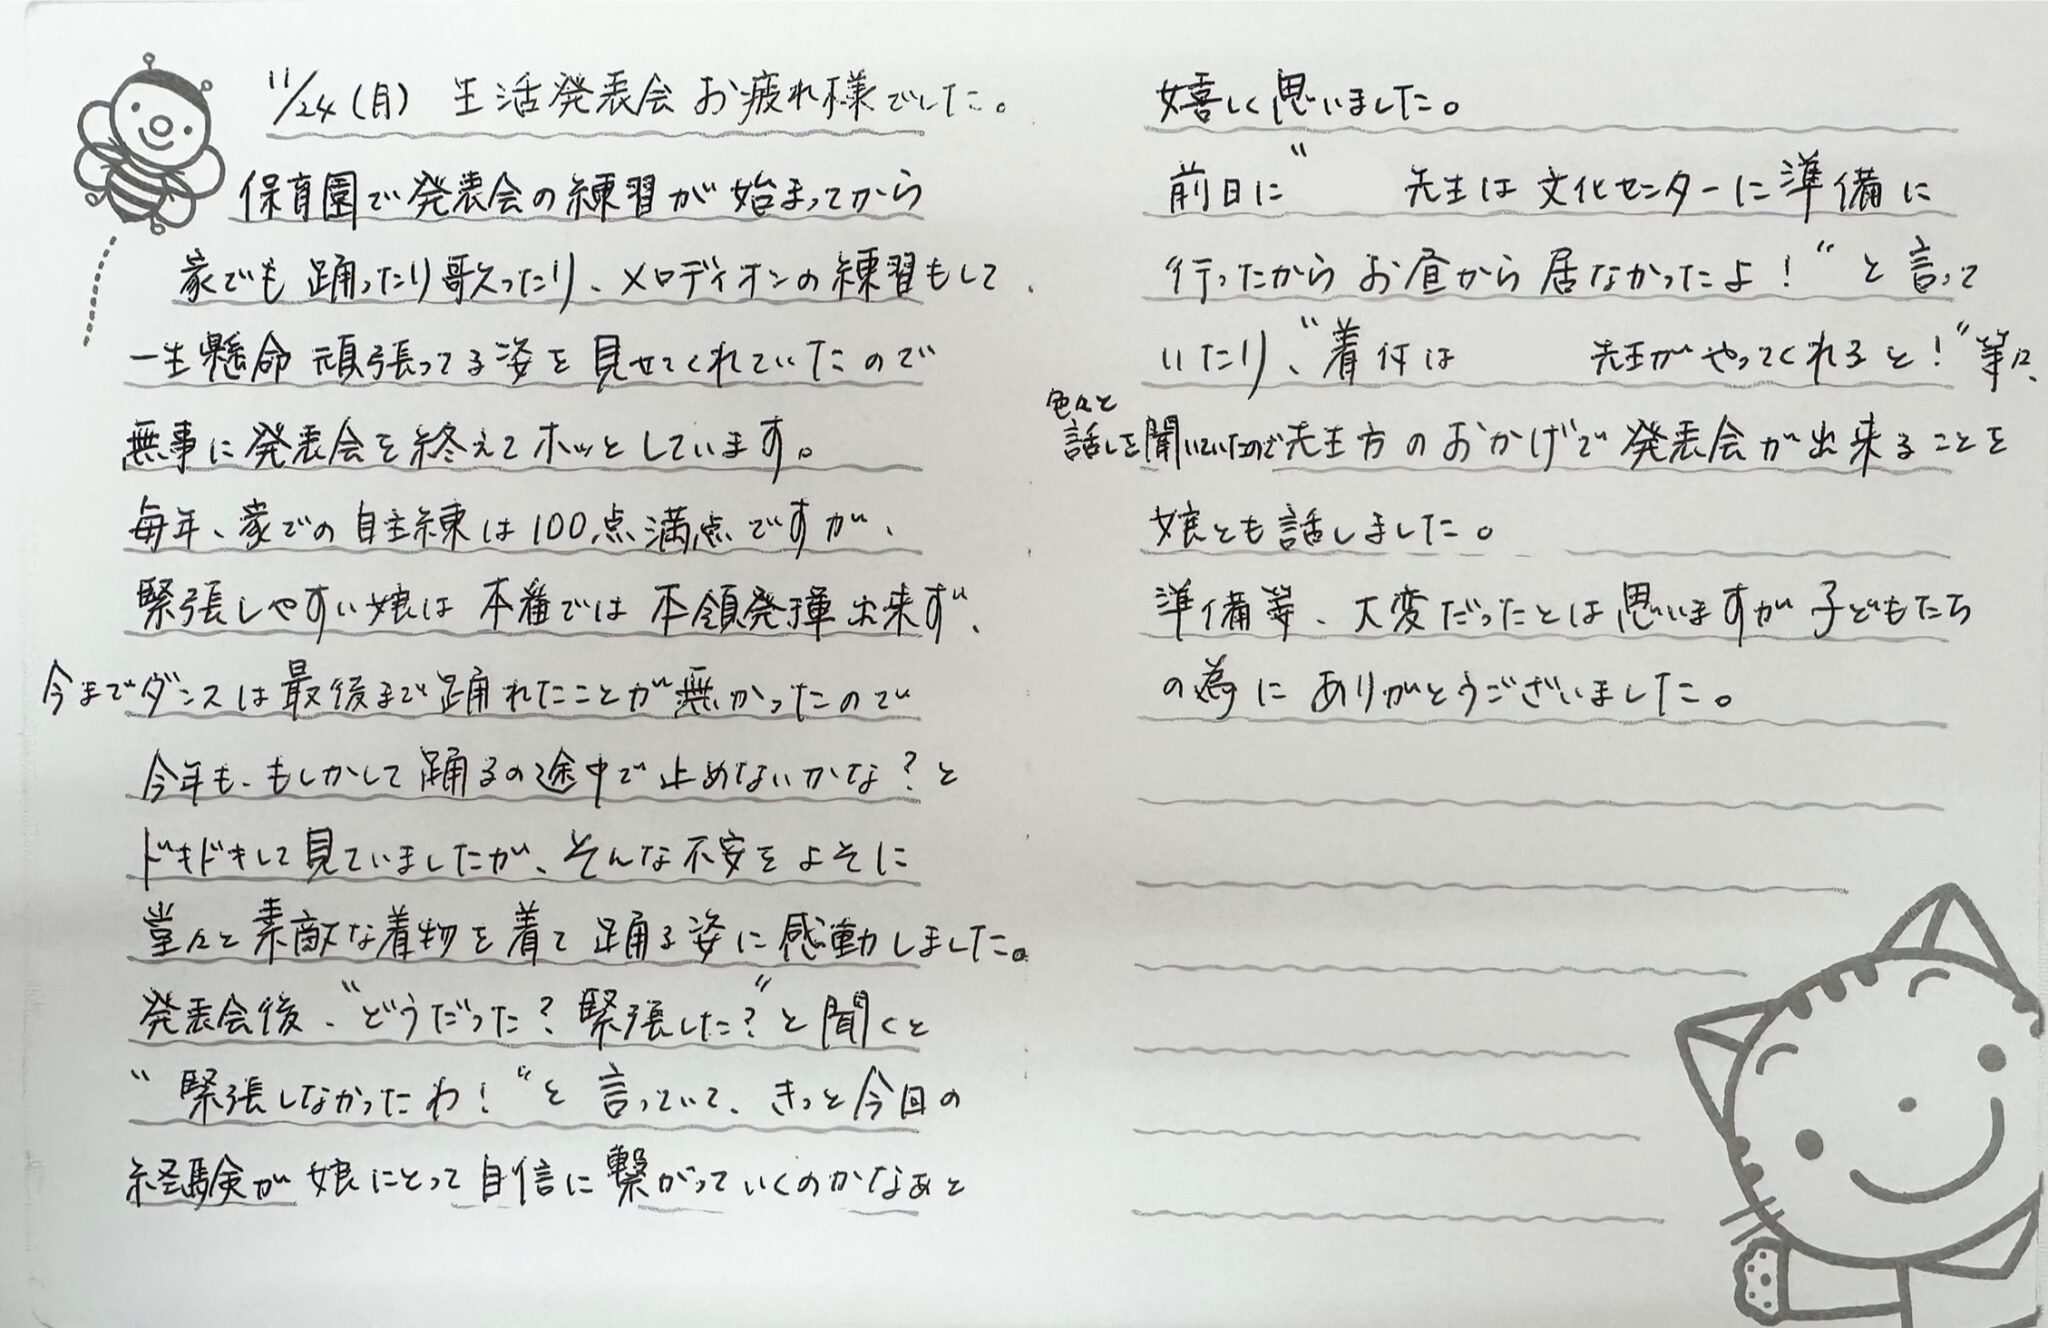 11/24(月) 生活発表会お疲れ様でした。
保育園で発表会の練習が始まってから
家でも踊ったり歌ったり、メロディオンの練習もして
一生懸命頑張ってる姿を見せてくれていたので
無事に発表会を終えてホッとしています。
毎年、家での自主練は100点満点ですが、
緊張しやすい娘は本番では本領発揮出来ず、
今までダンスは最後まで踊れたことが無かったので
今年も、もしかして踊るの途中で止めないかな?と
ドキドキして見ていましたが、そんな不安をよそに
堂々と素敵な着物を着て踊る姿に感動しました。
発表会後、"どうだった?緊張した?"と聞くと
"緊張しなかったわ!"と言っていて、きっと今回の
経験が娘にとって自信に繋がっていくのかなぁと
嬉しく思いました。
前日に" 先生は文化センターに準備に
行ったからお昼から居なかったよ!"と言って
いたり、"着付は 先生がやってくれると!"等々、
色々と
話しを聞いていたので先生方のおかげで発表会が出来ることを
娘とも話しました。
準備等、大変だったとは思いますが子どもたち
の為にありがとうございました。